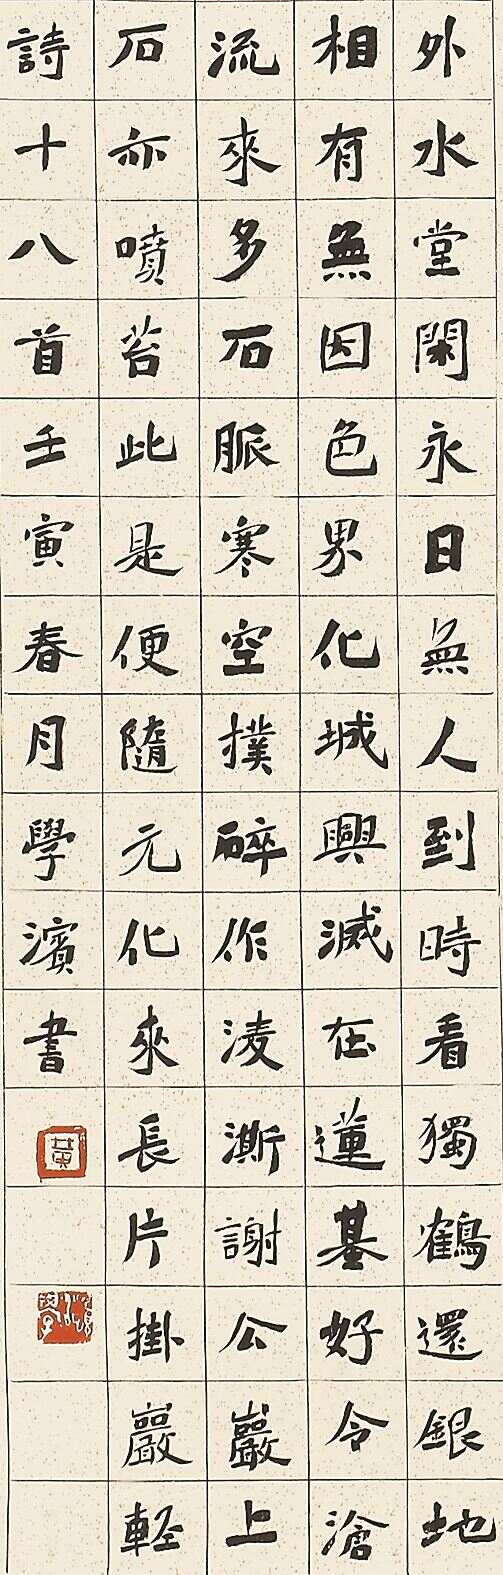 外水堂閑永日無人到時看獨鶴還銀地
相有無因色界化城興滅在蓮基好令滄
流來多石脈寒空撲碎作淩澌謝公巖上
石亦噴苔此是便隨元化來長片掛巖輕
詩十八首壬寅春月學濱書
黄